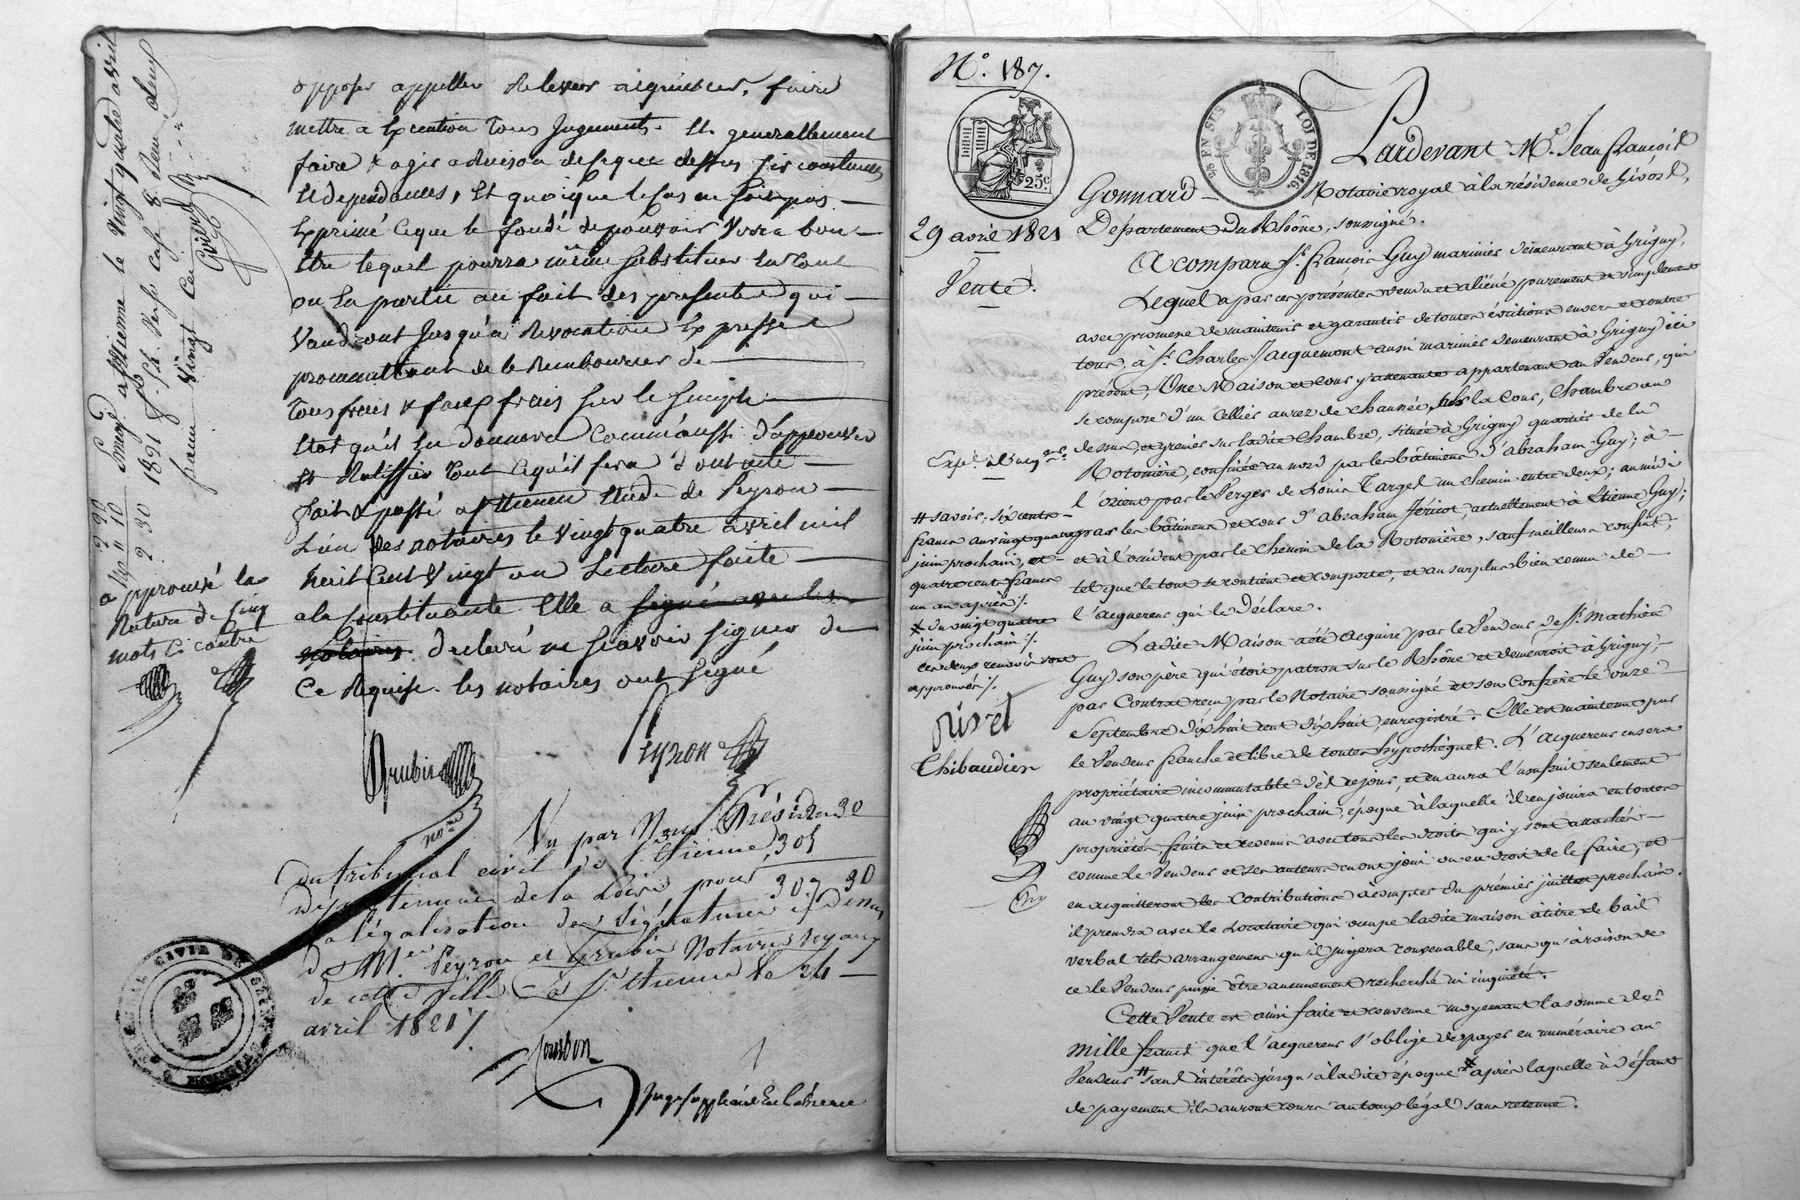 opposer appeller relever acquiescer, faire
mettre a Execution tous Jugements. Et generallement
faire & agir a raison de ce que dessus circonstances
Et dependances, Et quoique le cas ne soit pas
Exprimé ce que le fondé de pouvoir verra bon
Etre lequel pourra même substituer En tout
ou En partie au fait des presentes qui
vaudront jusqu'a revocation Expresse
promettant de le rembourser de
tous frais & faux frais sur le simple
Etat qu'il En donnera Comm'aussi d'approuver
Et Ratiffier tout ce qu'il fera dont acte
fait & passé a St Etienne Etude de Peyron
L'un des notaires le vingt quatre avril mil
huit Cent vingt un Lecture faite
a la constituante Elle a signé avec les
notaires declaré ne sçavoir signer de
Ce Requise. les notaires ont signé
approuvé la
Rature de Cinq
mots Ci contre
Grubis
Peyron
nore
Vu par Nous Président
du tribunal civil de St Etienne
département de la Loire pour
la légalisation des signatures ci dessus
de Mes Peyron et Grubis Notaires Royaux
de cette ville à St Etienne le 24
avril 1821 /.
30
305
307 30
Jourdon
Juge suppléant En l'absence
TRIBUNAL CIVIL DE
a St Etienne le vingt quatre avril
1821 fo 56 Vo Case 8 Reçu deux
francs vingt Centimes
2 20
10
2 30
No. 187.
25c
EN SUS
LOI DE 1816.
29 avril 1821
Vente.
Pardevant Me. Jean François
Gonnard Notaire royal à la résidence de Givors,
Département du Rhône, soussigné.
A comparu Sr. François Guy marinier demeurant à Grigny,
Lequel a par ces présentes vendu et aliéné purement et simplement
avec promesse de maintenir et garantir de toutes évictions envers et contre
tous, à Sr. Charles Jacquemont aussi marinier demeurant à Grigny ici
présent, Une Maison et cour y attenante appartenant au Vendeur, qui
se compose d'un Cellier au rez de chaussée, sur la Cour, Chambre au
dessus, et grenier sur ladite Chambre, située à Grigny quartier de la
Rotonière, confinée au nord par les bâtiments d'abraham Guy; à
l'orient par le Verger de Louis Targel un chemin entre deux; au midi
par les bâtiments et cour d'abraham Jéricot, actuellement à Etienne Guy;
et à l'occident par le Chemin de la Rotonière, sauf meilleurs confins;
tel que le tout se contient et comporte, et au surplus bien connu de
l'acquéreur qui le déclare.
Ladite Maison a été acquise par le Vendeur de Sr. Mathieu
Guy son père qui étoit patron sur le Rhône et demeuroit à Grigny,
par Contrat reçu par le Notaire soussigné et son Confrère le onze
Septembre dix huit cent dix huit, enregistré. Elle est maintenue par
le Vendeur franche et libre de toutes hypothèques. L'acquéreur en sera
propriétaire incommutable dès ce jour, et en aura l'usufruit seulement
au vingt quatre juin prochain, époque à laquelle il en jouira en toutes
propriétés fruits et revenus avec tous les droits qui y sont attachés
comme le Vendeur et ses auteurs en ont joui ou eu droit de le faire, et
en acquitteront les Contributions à compter du premier juillet prochain.
il prendra avec le Locataire qui occupe ladite maison à titre de bail
verbal tels arrangements qu'il jugera convenable, sans qu'à raison de
ce le Vendeur puisse être aucunement recherché ni inquiété.
Cette Vente est ainsi faite et convenue moyennant la somme de
mille francs que l'acquéreur s'oblige de payer en numéraire au
Vendeur # sans intérêts jusqu'à ladite époque après laquelle à défaut
de payement ils auront cours au taux légal sans retenue.
# savoir: six cents
francs au vingt quatre
juin prochain, et
quatre cent francs
un an après /.
du vingt quatre
juin prochain /.
ces deux renvois sont
approuvés /.
Rivet
Thibaudier